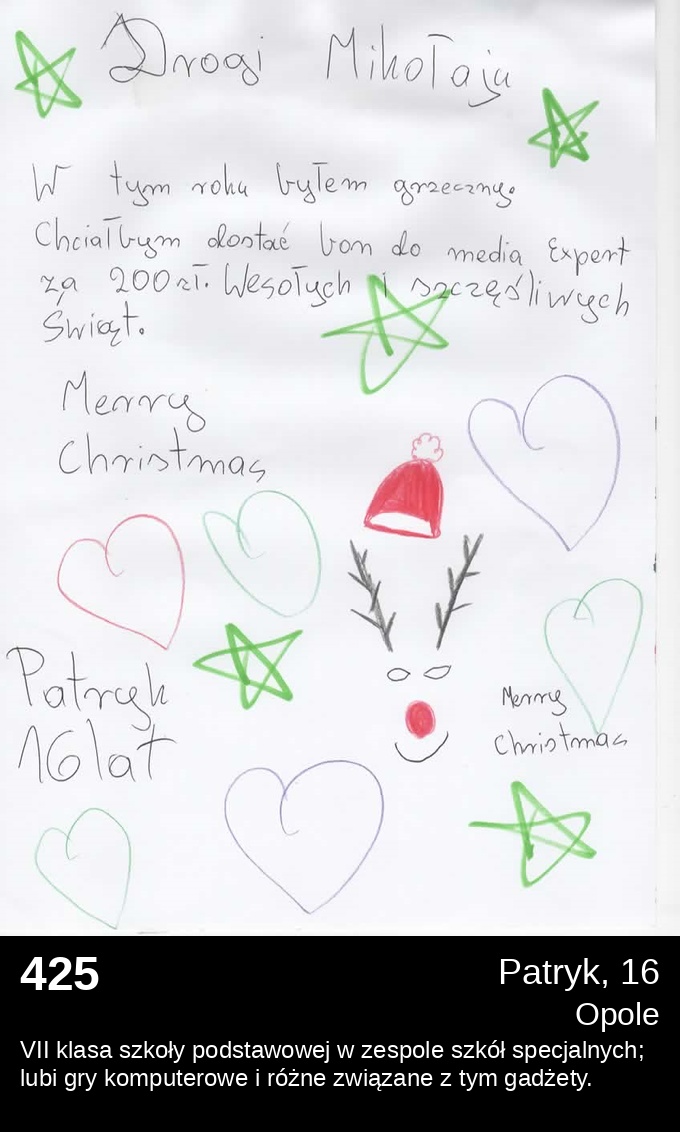 Drogi Mikołaju
W tym roku byłem grzeczny.
Chciałbym dostać bon do media Expert
za 200 zł. Wesołych i szczęśliwych
Świąt.
Merry
Christmas
Patryk
16 lat
Merry
Christmas
425
Patryk, 16
Opole
VII klasa szkoły podstawowej w zespole szkół specjalnych;
lubi gry komputerowe i różne związane z tym gadżety.